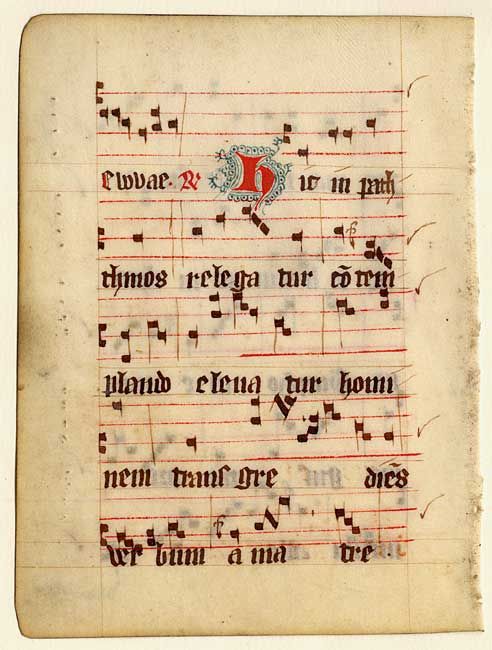 Ewvae. ℟ Hic in path
thmos relega tur cõ tem
plando eleva tur homi
nem trans gre diẽs
ver bum a ma tre